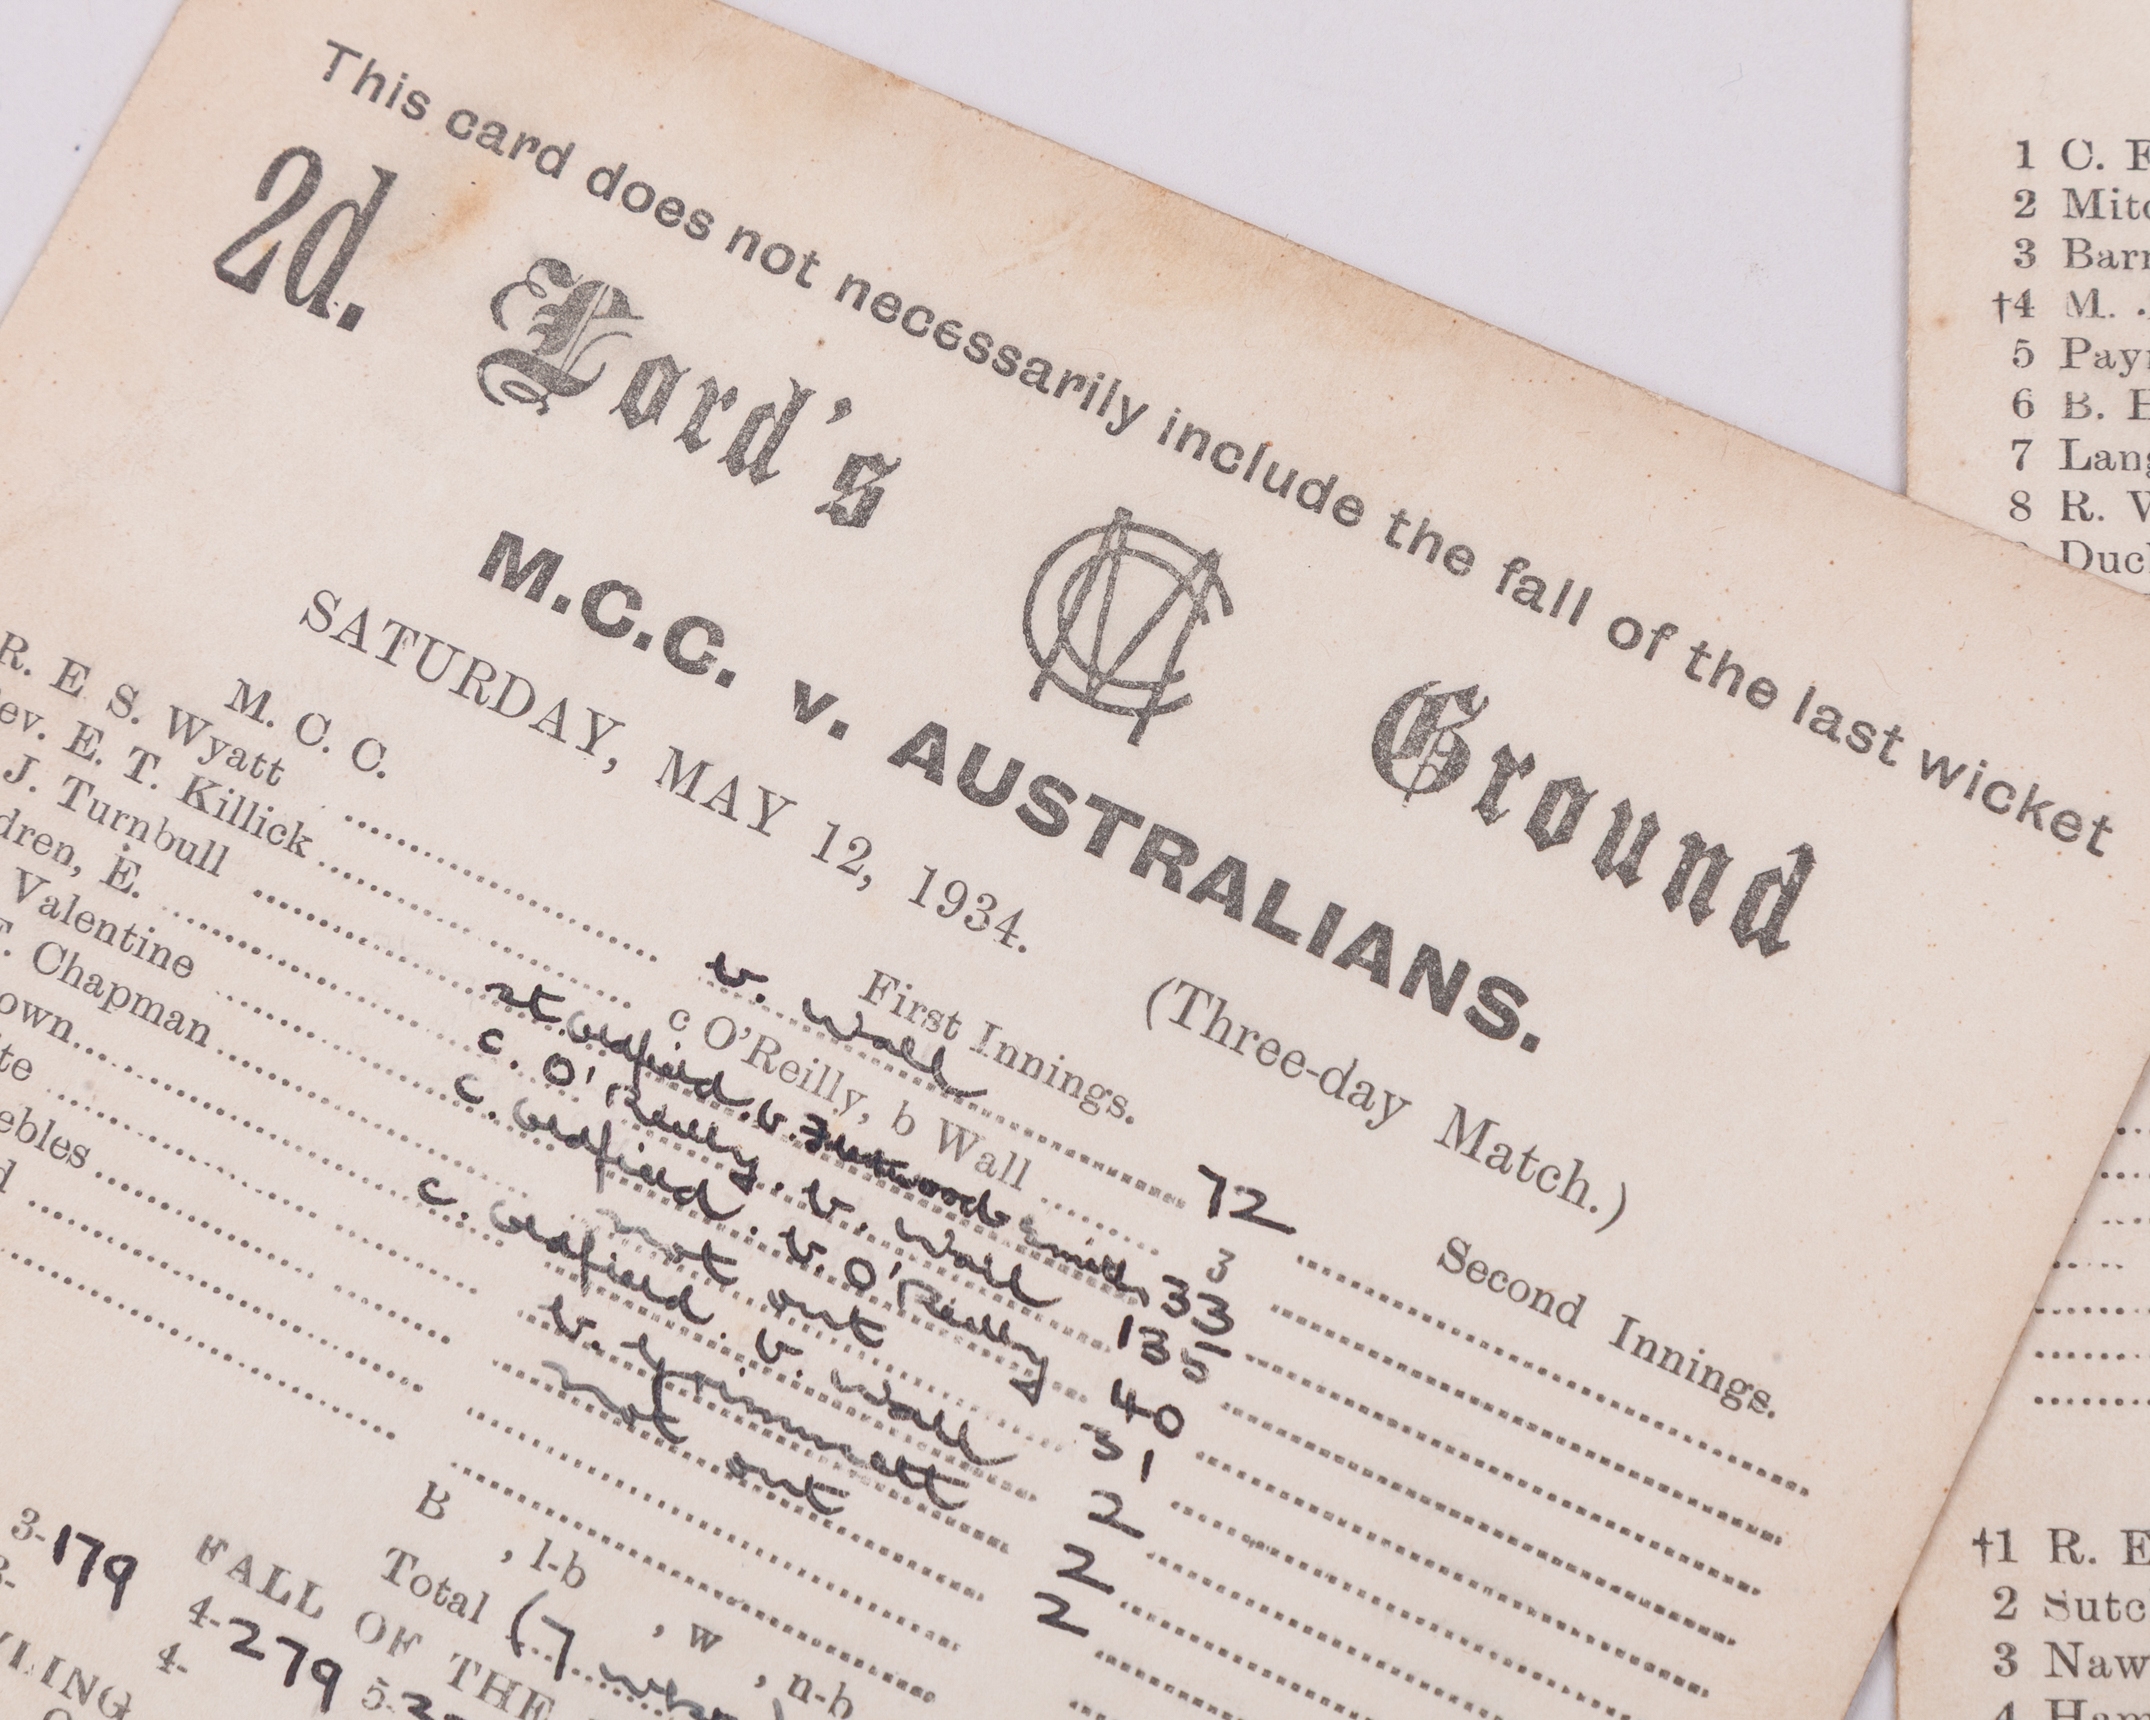 This card does not necessarily include the fall of the last wicket
2d. Lord's MCC Ground
M.C.C. v. AUSTRALIANS.
SATURDAY, MAY 12, 1934. (Three-day Match.)
M. C. C. First Innings. Second Innings.
R. E S. Wyatt b. Wall 72
ev. E. T. Killick c O'Reilly, b Wall 3
J. Turnbull st. Oldfield. b. Smith 33
dren, E. c. O'Reilly. b. Wall 135
Valentine c. Oldfield. b. O'Reilly 40
F. Chapman not out 51
own c. Oldfield. b. Wall 2
te b. Grimmett 2
ebles not out 2
d
B , l-b , w , n-b
Total (7
FALL OF THE
3-179 4-279 5-3
3- 4-
LING
1 C.
2 Mitc
3 Barr
†4 M.
5 Pay
6 B.
7 Lang
8 R.
Duc
†1 R. E
2 Sutc
3 Naw
4 Ham